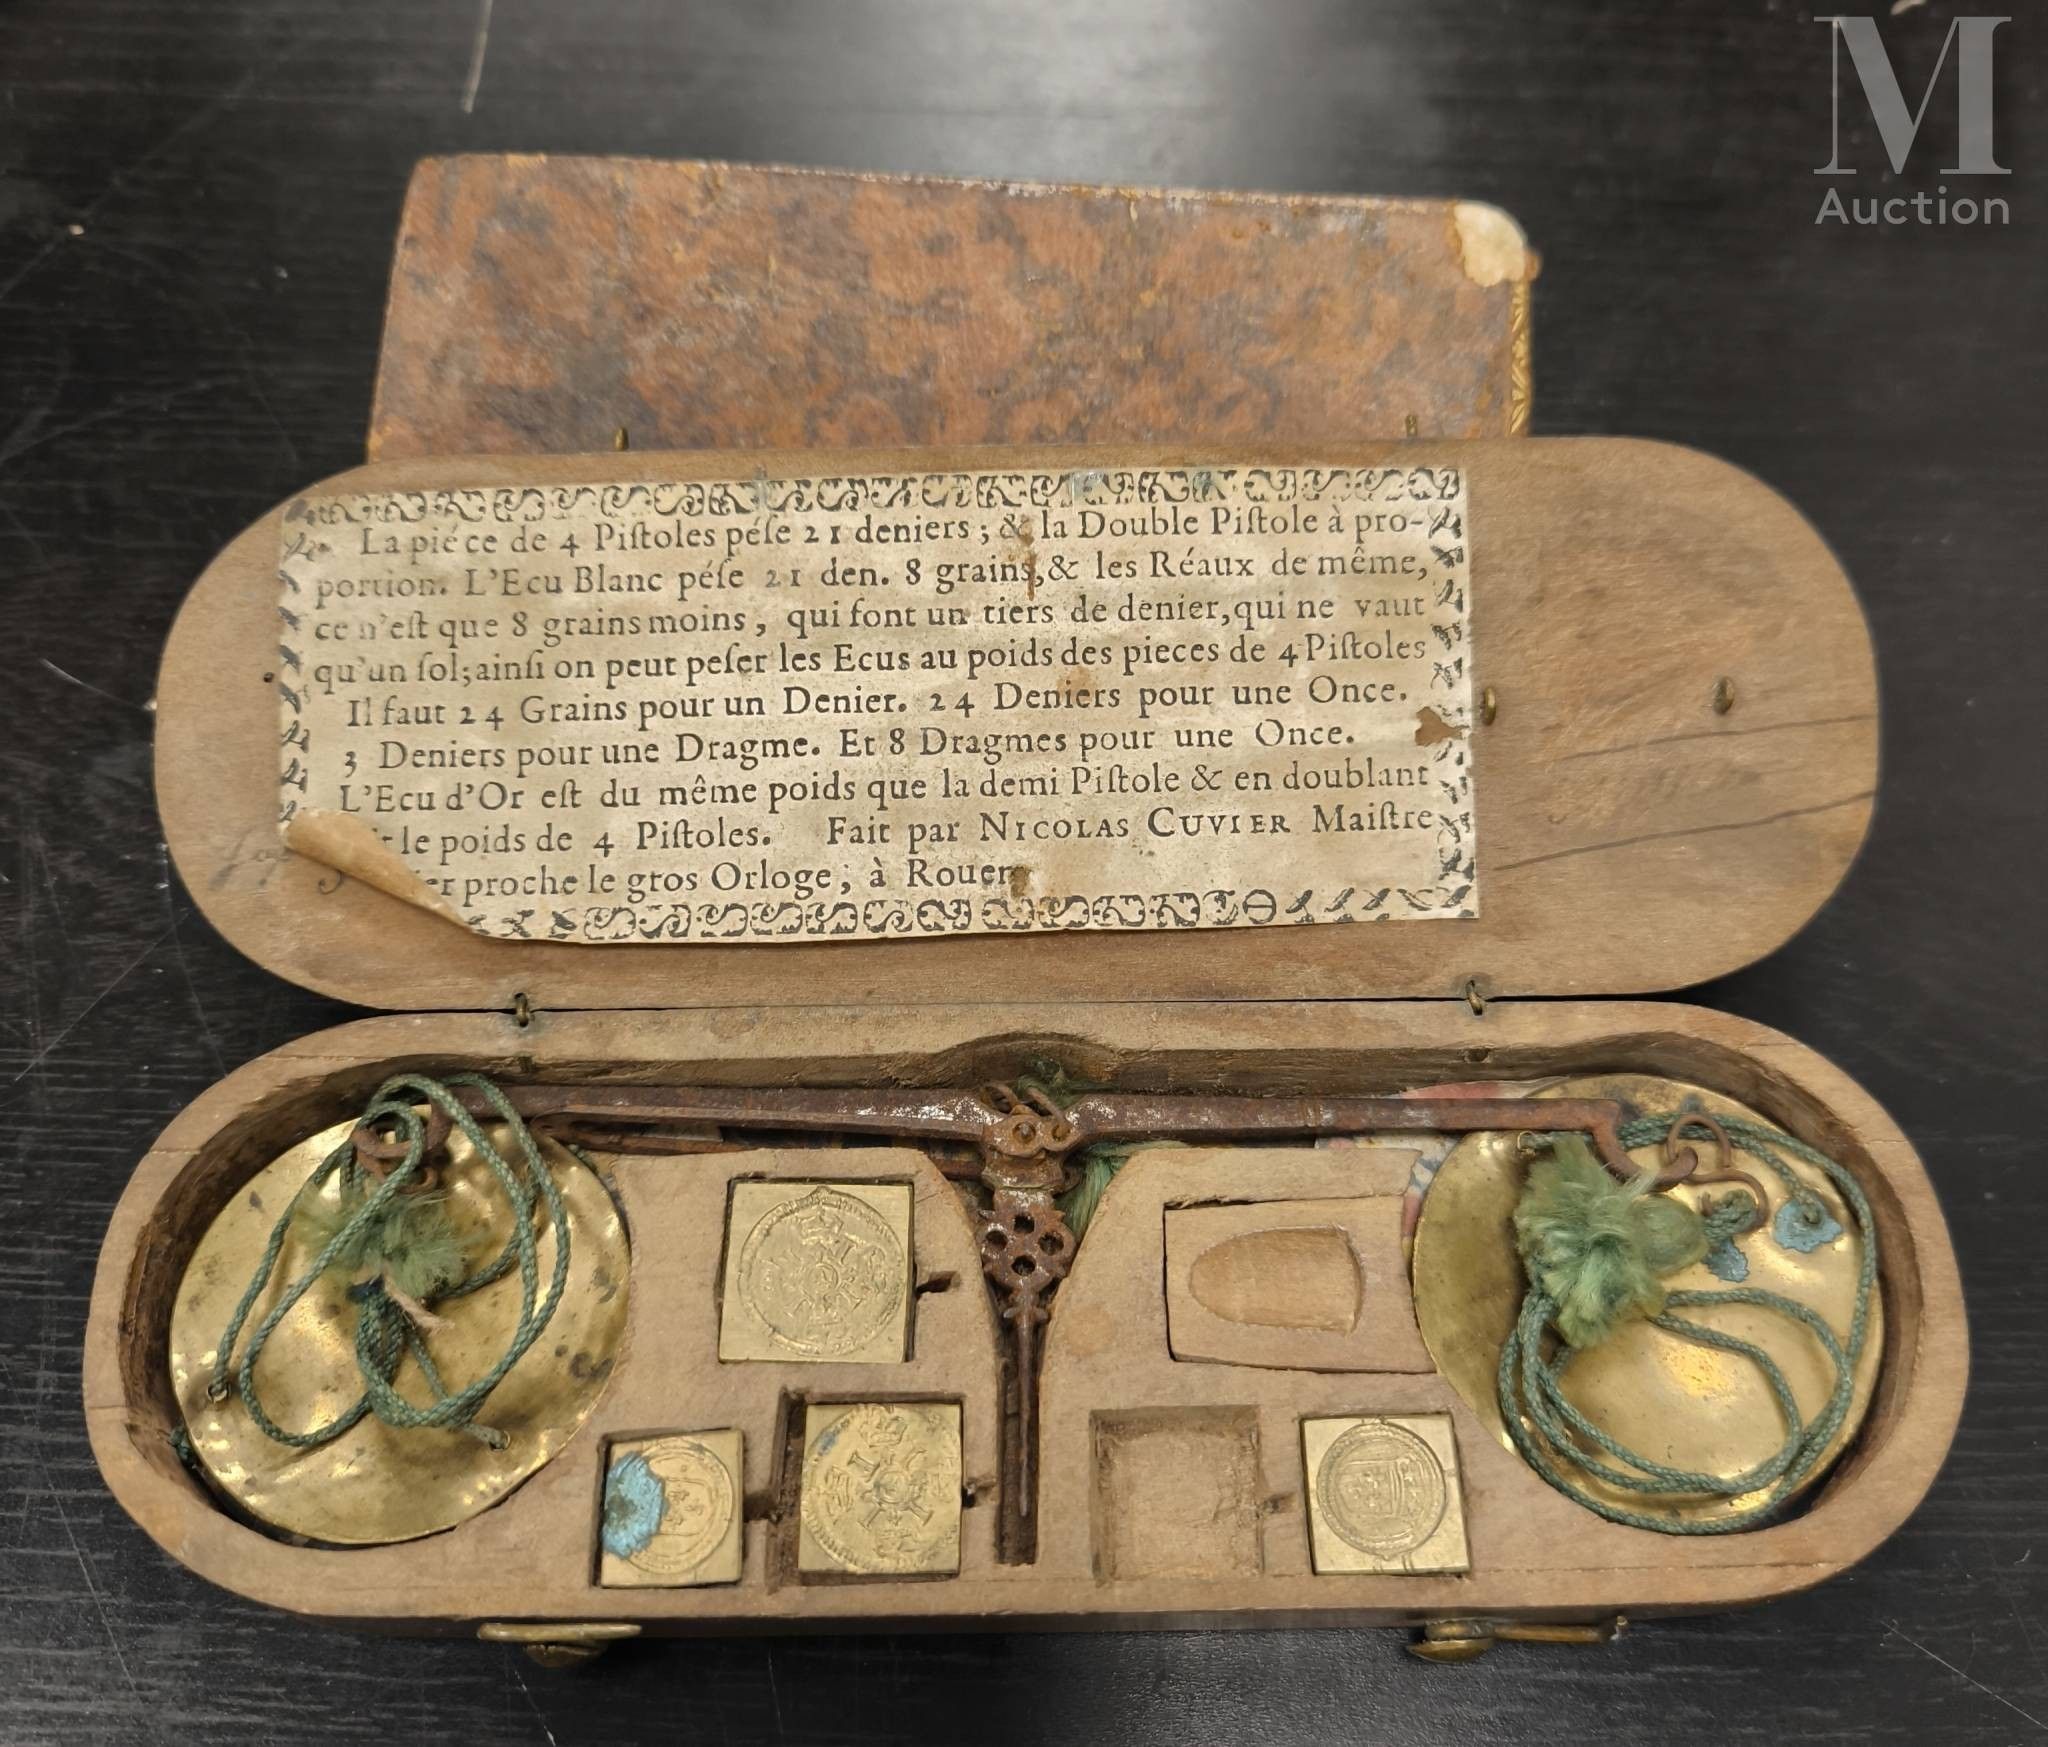 M
Auction
La piéce de 4 Piſtoles péſe 21 deniers; & la Double Piſtole à pro-
portion. L'Ecu Blanc péſe 21 den. 8 grains, & les Réaux de même,
ce n'eſt que 8 grains moins, qui font un tiers de denier, qui ne vaut
qu'un ſol; ainſi on peut peſer les Ecus au poids des pieces de 4 Piſtoles
Il faut 24 Grains pour un Denier. 24 Deniers pour une Once.
3 Deniers pour une Dragme. Et 8 Dragmes pour une Once.
L'Ecu d'Or eſt du même poids que la demi Piſtole & en doublant
le poids de 4 Piſtoles. Fait par NICOLAS CUVIER Maiſtre
proche le gros Orloge; à Rouen